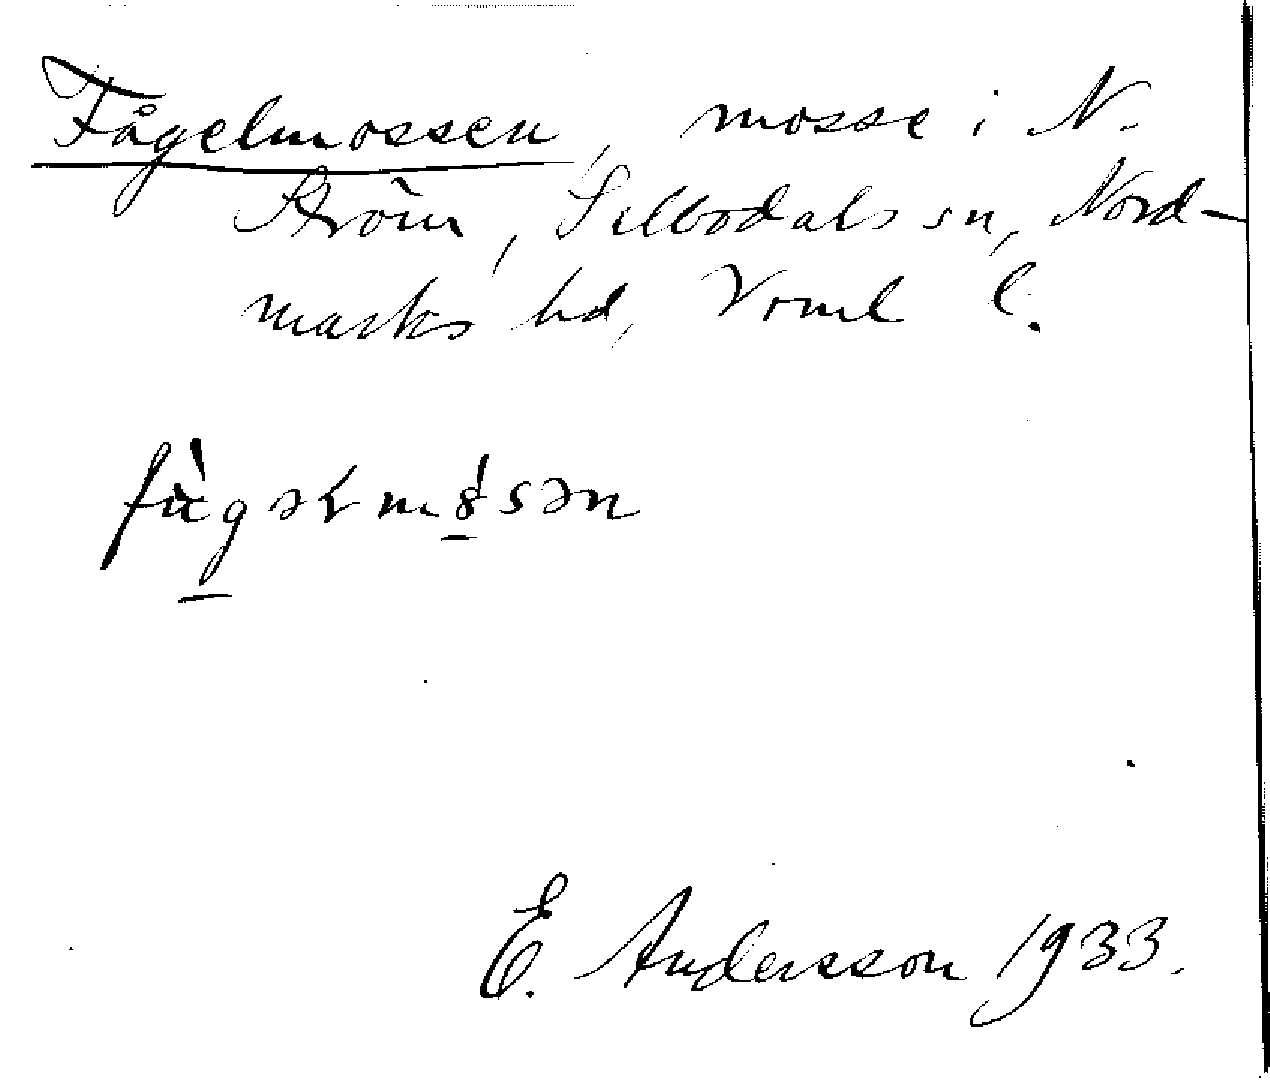 Fågelmossen, mosse i N.
Ström, Silbodals sn, Nord-
marks hd, Vrml l.
E. Andersson 1933.